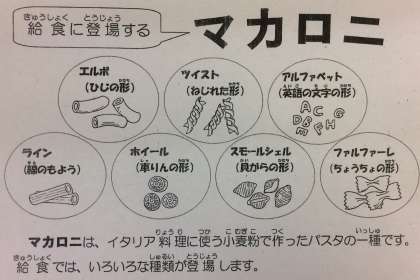 給食に登場する
きゅうしょく とうじょう
マカロニ
エルボ
(ひじの形)
かたち
ツイスト
(ねじれた形)
かたち
アルファベット
(英語の文字の形)
えいご もじ かたち
A C G
D E
B M F H
ライン
(線のもよう)
せん
ホイール
(車りんの形)
しゃ かたち
スモールシェル
(貝がらの形)
かい かたち
ファルファーレ
(ちょうちょの形)
かたち
りょうり つか こむぎこ つく いっしゅ
マカロニは、イタリア料理に使う小麦粉で作ったパスタの一種です。
きゅうしょく しゅるい とうじょう
給食では、いろいろな種類が登場します。